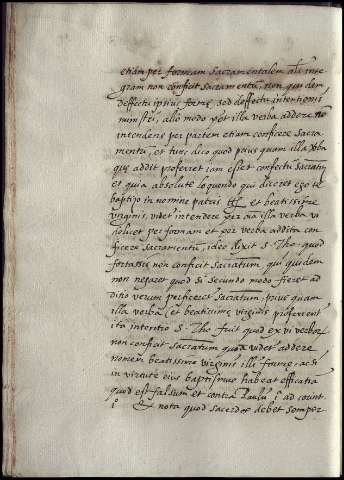 etiam per formam sacramentalem alias inte
gram non conficit sacramentu, non qui dem
deffectu ipsius forme, sed deffectu intentionis
ministri, alio modo pot illa verba addere non
intendens per partem etiam conficere sacra
mentu, et tunc dico quod prius quam illa verba
que addit proferret iam esset confectu sacratu
et quia absolute loquendo qui diceret ego te
baptizo in nomine patris et beatissime
virginis, videt intendere per oia illa verba
per formam et per verba addita con
ficere sacramentu, ideo dixit S. Tho. quod
fortassis non conficit sacratum qui quidem
non negaret quod si secundo modo fieret ad
ditio verum perficeret sacratum, prius quam
illa verba, et beatissime virginis proferrent
ita intentio S. Tho. fuit quod ex vi verbor
non conficit sacratum quia videt addere
nomen beatissime virginis illi forme, ac si
in virtute eius baptismus habeat efficatia
quod est falsum et contra Paulu 1 ad corint.
1 & nota quod sacerdos debet semper